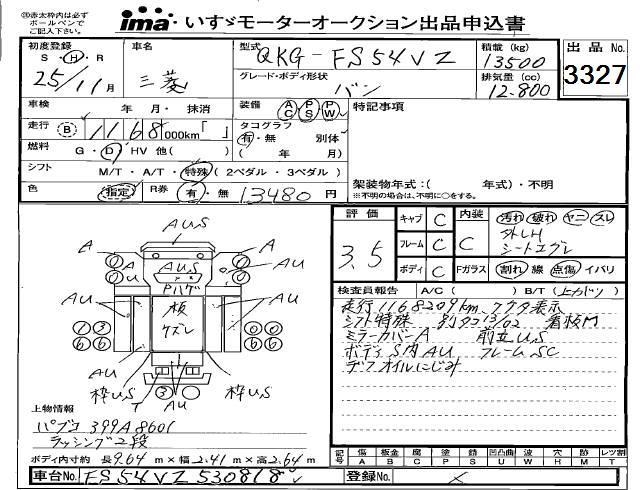 ㊟赤太枠内は必ず
ボールペンで
ご記入下さい。
ima いすゞモーターオークション出品申込書
初度登録 S・H・R 25/11月
車名 三菱
型式 QKG-FS54VZ
積載(kg) 13500
グレード・ボディ形状 バン
排気量(cc) 12.800
出品No. 3327
車検 年 月・抹消
装備 AC PS PW
特記事項
走行 B 1168,000km「 」
タコグラフ 有・無 別体
( 年 月)
燃料 G・D・HV 他( )
シフト M/T・A/T・特殊(2ペダル・3ペダル)
色 指定 R券 有・無 13480円
架装物年式:( 年式)・不明
※不明の場合は、不明に○をする。
評価 3.5
キャブ C 内装 C 汚れ 破れ ヤニ スレ
フレーム C
シートコゲレ
ボディ C Fガラス 割れ 線 点傷 イバリ
検査員報告 A/C( ) B/T( )
走行1168209km
シフト特殊 別タコ13/02 看板門
ミラーカバーA 前立US
ボディS内AU フレームSC
デフオイルにじみ
AUS
A A
AUS
AU AU
Pハゲ
板
AU AU
ケズレ
AU AU
枠US T 枠US
3
AU
上物情報
パブコ 399A8601
ラッシング2段
ボディ内寸約 長9.64m×巾2.41m×高2.64m
記号 傷A 板金B 腐C 塗P 錆S 凹凸曲U 波W 穴H 跡M レツ割T
車台No. FS54VZ530818
登録No.